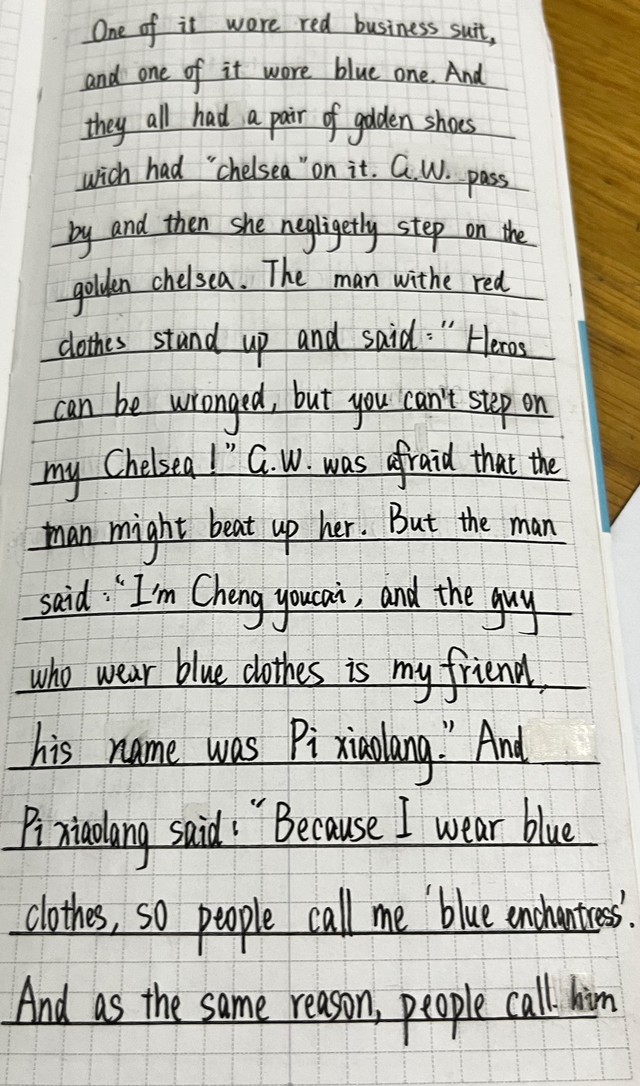 One of it wore red business suit,
and one of it wore blue one. And
they all had a pair of golden shoes
wich had "chelsea" on it. G.W. pass
by and then she negligetly step on the
golden chelsea. The man withe red
clothes stand up and said: "Heros
can be wronged, but you can't step on
my Chelsea!" G.W. was afraid that the
man might beat up her. But the man
said: "I'm Cheng youcai, and the guy
who wear blue clothes is my friend,
his name was Pi xiaolang." And
Pi xiaolang said: "Because I wear blue
clothes, so people call me 'blue enchantress'.
And as the same reason, people call him